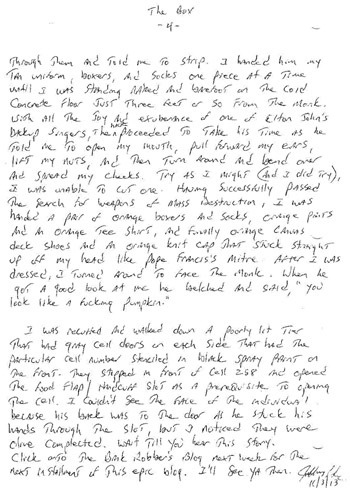 The Box
-4-
Through Them and Told me to strip. I handed him my
Tan uniform, boxers, and socks one piece at a Time
until I was standing naked and barefoot on The cold
concrete floor just Three feet or so from The Monk.
With all The joy and exuberance of one of Elton John's
backup singers, Then proceeded To Take his Time as he
Told me To open my mouth, pull forward my ears,
lift my nuts, and Then Turn around and bend over
and spread my cheeks. Try as I might (and I did Try),
I was unable To cut one. Having successfully passed
The search for weapons of mass destruction, I was
handed a pair of orange boxers and socks, orange pants
and an orange Tee shirt, and finally orange canvas
deck shoes and an orange knit cap That stuck straight
up off my head like Pope Francis's Mitre. After I was
dressed, I Turned around To face The Monk. When he
got a good look at me he belched and said, "You
look like a fucking pumpkin."
I was recuffed and walked down a poorly lit Tier
That had gray cell doors on each side That had The
particular cell number stenciled in black spray paint on
The front. They stopped in front of cell 258 and opened
The food flap/handcuff slot as a prerequisite to opening
The cell. I couldn't see The face of The individual
because his back was To The door as he stuck his
hands Through The slot, but I noticed They were
olive complected. Wait Till you hear This story.
Click onto The Bank Robber's Blog next week for The
next installment of This epic blog. I'll see ya Then.